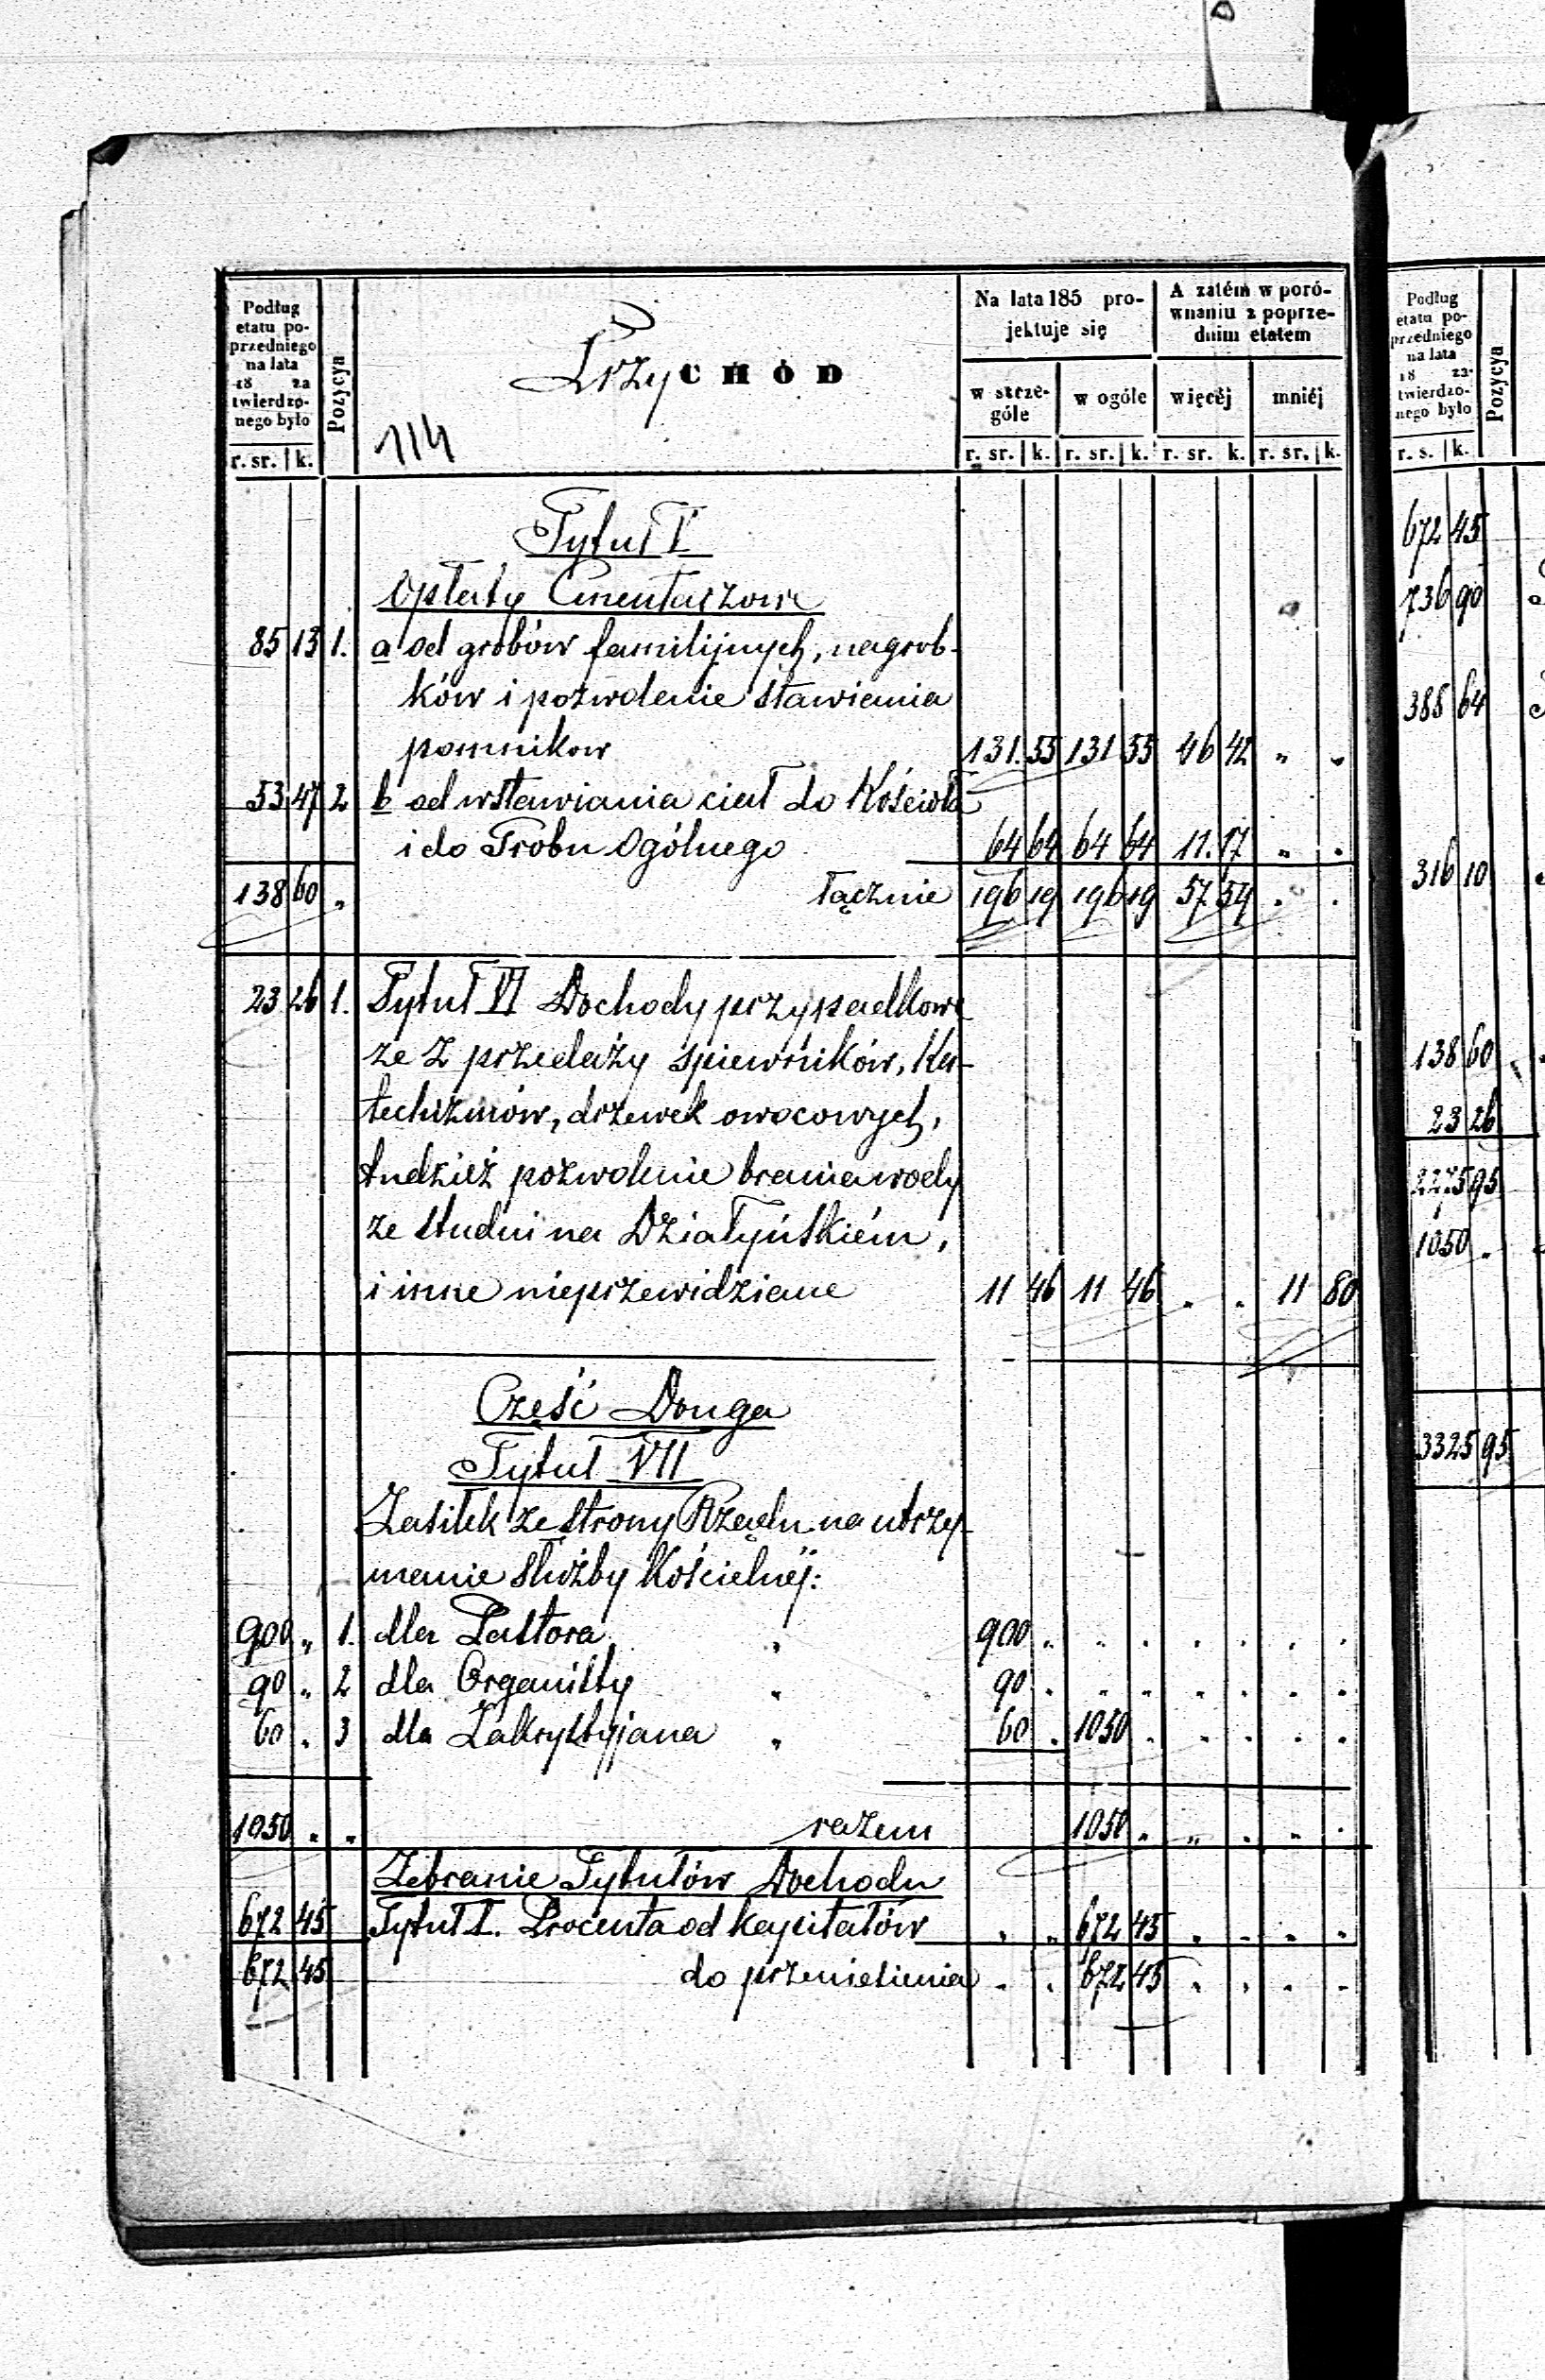 Podług etatu poprzedniego na lata 18 zatwierdzonego było
r. sr. k.
Pozycya
PrzyCHÓD
114
Na lata 185 projektuje się
w szczególe
w ogóle
r. sr. k. r. sr. k.
A zatém w porównaniu z poprzednim etatem
więcéj
mniéj
r. sr. k. r. sr. k.
Tytuł V
Opłaty Cmentarzowe
85 13 1. a od grobów familijnych, nagrob-
ków i pozwolenie stawiania
pomnikow 131. 55 131 55 46 42 " "
53 47 2 b od wstawiania ciał do Kościoła
i do Grobu Ogólnego 64 64 64 64 11. 17 " "
138 60 " łącznie 196 19 196 19 57. 59 " "
23 26 1. Tytuł VI Dochody przypadkowe
ze z przedaży śpiewników, Ka-
techizmów, drzewek owocowych,
tudzież pozwolenie brania wody
ze studni na Działyńskiém,
i inne nieprzewidziane 11 46 11 46 " " 11 80
Część Druga
Tytuł VII
Zasiłek ze strony Rządu na utrzy-
manie służby Kościelnéj:
900 " 1. dla Pastora " 900 " " " " " " "
90 " 2 dla Organisty " 90 " " " " " " "
60 " 3 dla Zakrystyjana " 60 " 1050 " " " " "
1050 " " razem 1050 " " " " "
Zebranie Tytułów Dochodu
672 45 Tytuł I. Procenta od kapitałów " " 672 45 " " " "
672 45 do przeniesienia " " 672 45 " " " "
Podług etatu poprzedniego na lata 18 zatwierdzonego było
r. s. k.
Pozycya
672 45
736 90
388 64
316 10
138 60
23 26
2275 95
1050 "
3325 95